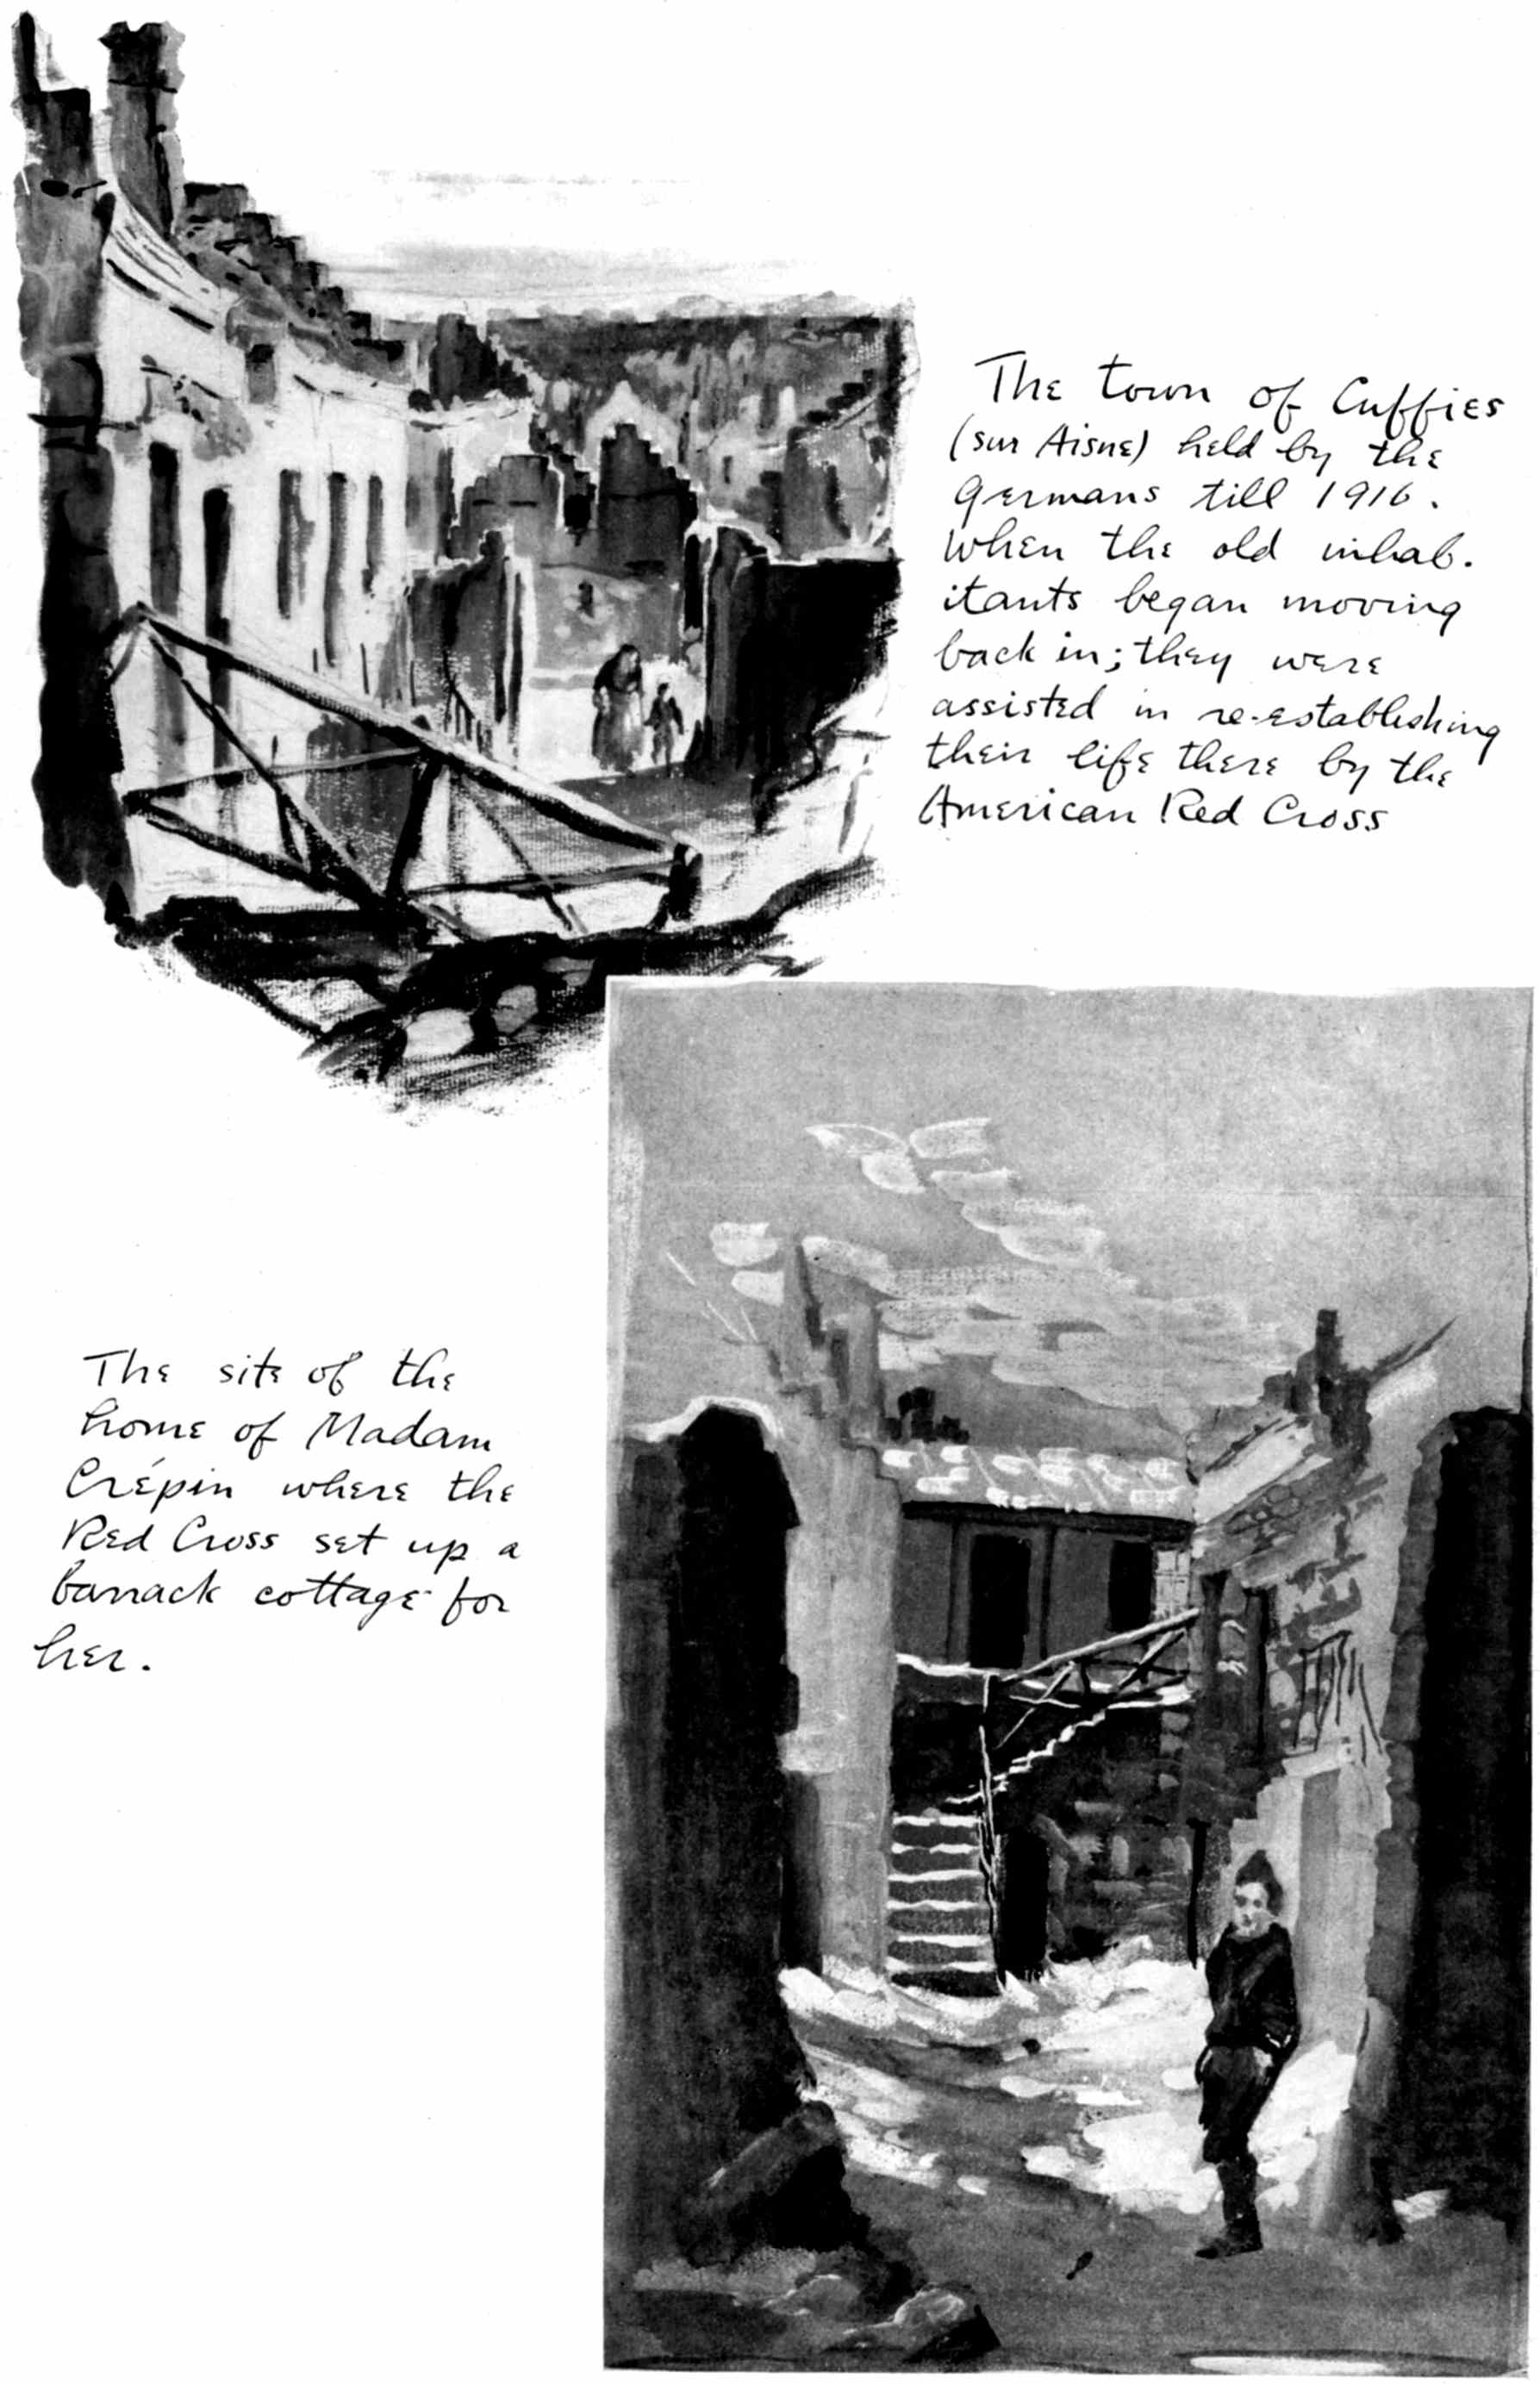 The town of Cuffies
(sur Aisne) held by the
Germans till 1916.
When the old inhab.
itants began moving
back in; they were
assisted in re-establishing
their life there by the
American Red Cross
The site of the
home of Madam
Crépin where the
Red Cross set up a
barrack cottage for
her.